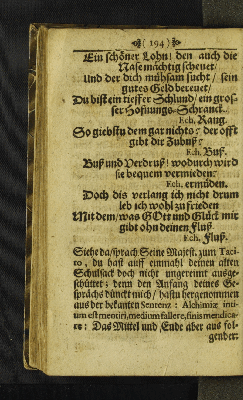 ( 194 )
Ein schöner Lohn / den auch die
Nase mächtig scheuet /
Und der dich mühsam sucht / sein
gutes Geld bereuet /
Du bist ein tieffer Schlund / ein gros-
ser Hofnungs-Schranck.
Ech. Rang.
So giebstu dem gar nichts? der offt
gibt dir Zubuß?
Ech. Buß.
Buß und Verdruß! wodurch wird
sie bequem vermieden?
Ech. ermüden.
Doch dis verlang ich nicht drum
leb ich wohl zu frieden
Mit dem / was GOtt und Glück mir
gibt ohn deinen Fluß.
Ech. Fluß.
Siehe da / sprach Seine Majest. zum Taci-
to, du hast auff einmahl deinen alten
Schulsack doch nicht ungereimt ausge-
schüttet; denn den Anfang deines Ge-
sprächs dünckt mich / hastu hergenommen
aus der bekanten Sentenz: Alchimiæ ini-
tium est mentiri, medium fallere, finis mendica-
re: Das Mittel und Ende aber aus fol-
gender: